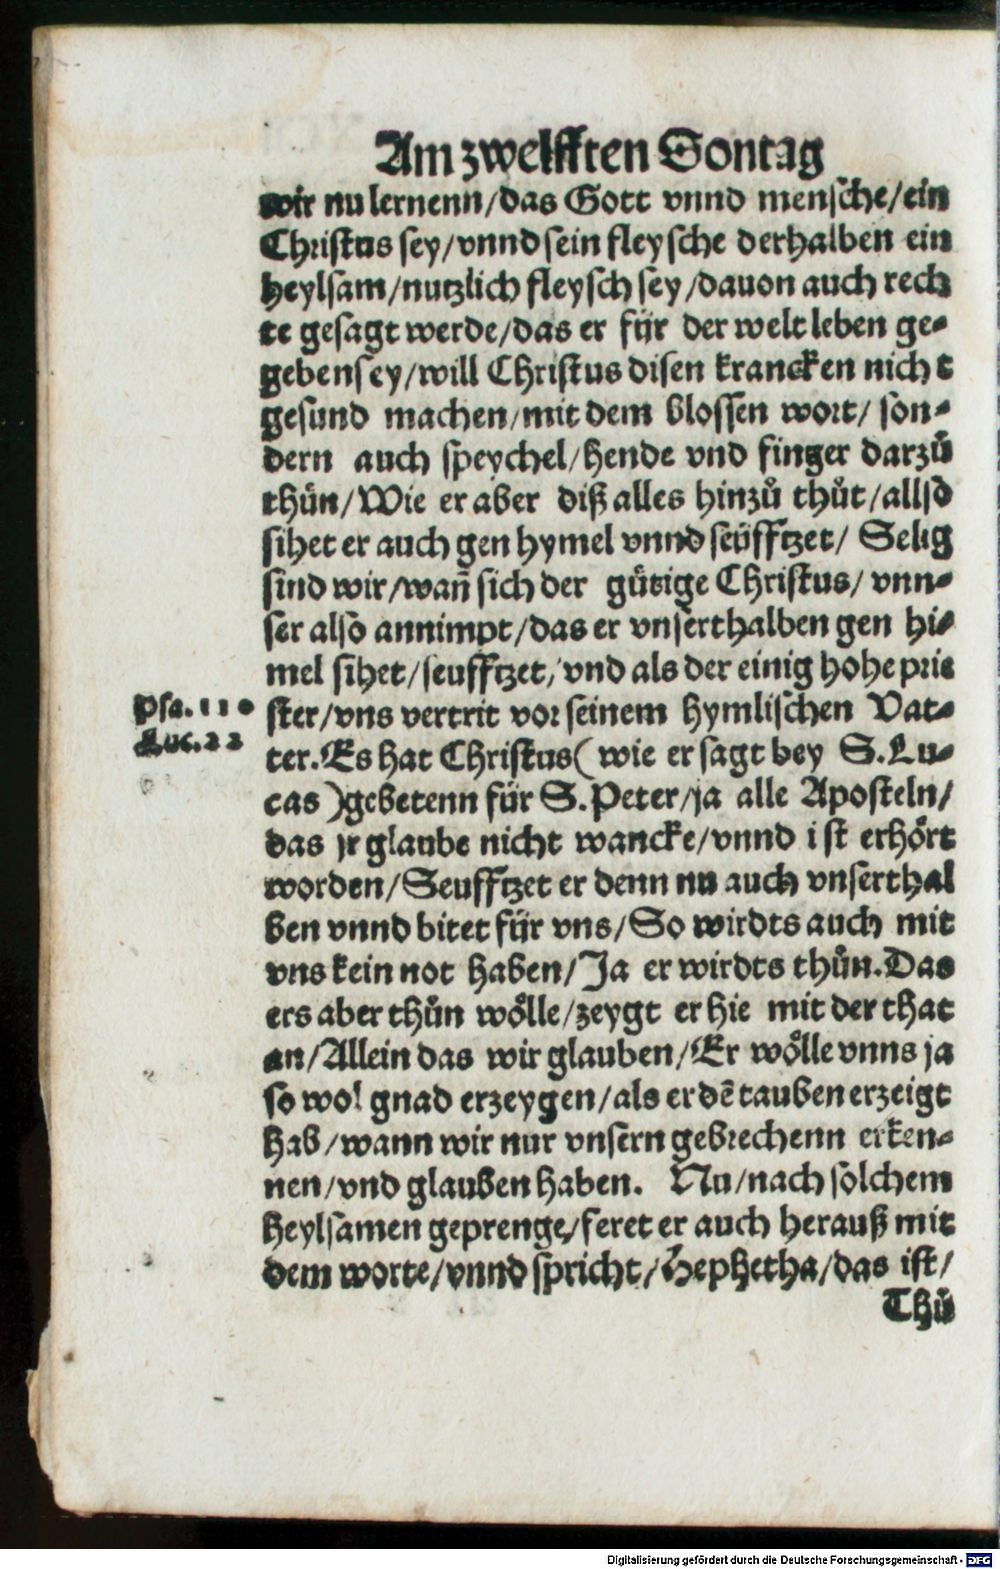 Am zwelfften Sontag
wir nu lernenn/das Gott vnnd mensche/ein
Christus sey/vnnd sein fleysche derhalben ein
heylsam/nutzlich fleysch sey/dauon auch rech
te gesagt werde/das er für der welt leben ge-
geben sey/will Christus disen krancken nicht
gesund machen/mit dem blossen wort/ son-
dern auch speychel/hende vnd finger darzů
thůn/Wie er aber diß alles hinzů thůt/allso
sihet er auch gen hymel vnnd seüfftzet/ Selig
sind wir/wañ sich der gütige Christus/ vnn-
ser also annimpt/das er vnserthalben gen hi-
mel sihet/seufftzet/vnd als der einig hohe prie
Psa.110 ster/vns vertrit vor seinem hymlischen Vat-
Luc.22 ter.Es hat Christus(wie er sagt bey S.Lu-
cas)gebetenn für S.Peter/ja alle Aposteln/
das jr glaube nicht wancke/vnnd ist erhört
worden/Seufftzet er denn nu auch vnserthal
ben vnnd bitet für vns/So wirdts auch mit
vns kein not haben/Ja er wirdts thůn.Das
ers aber thůn wölle/zeygt er hie mit der that
an/Allein das wir glauben/Er wölle vnns ja
so wol gnad erzeygen/als er dē tauben erzeigt
hab/wann wir nur vnsern gebrechenn erken-
nen/vnd glauben haben. Nu/nach solchem
heylsamen geprenge/feret er auch herauß mit
dem worte/vnnd spricht/Hephetha/das ist/
Thů
Digitalisierung gefördert durch die Deutsche Forschungsgemeinschaft - DFG